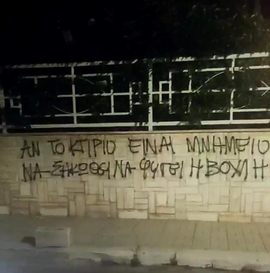 ΑΝ ΤΟ ΚΤΙΡΙΟ ΕΙΝΑΙ ΜΝΗΜΕΙΟ
ΝΑ ΣΗΚΩΘΕΙ ΝΑ ΦΥΓΕΙ Η ΒΟΧΗ Η